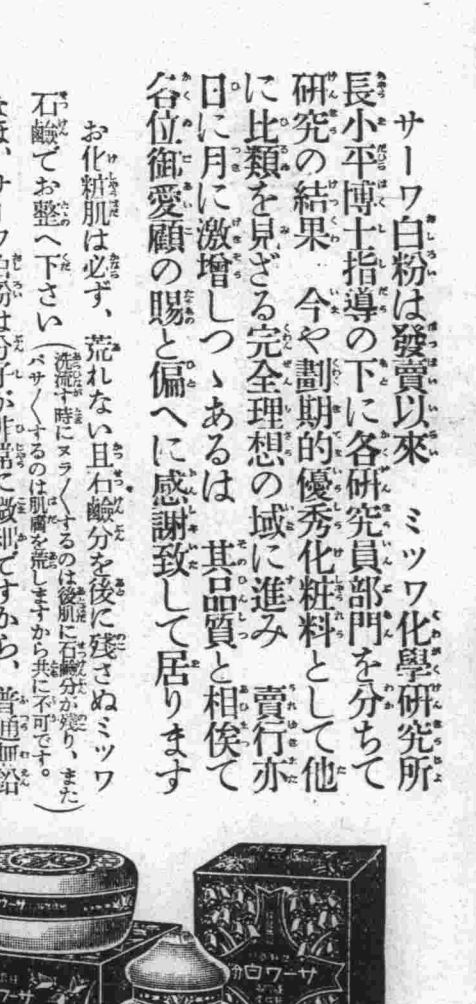 サーワ白粉は發賣以來　ミツワ化學研究所
長小平博士指導の下に各研究員部門を分ちて
研究の結果　今や劃期的優秀化粧料として他
に比類を見ざる完全理想の域に進み　賣行亦
日に月に激增しつゝあるは　其品質と相俟て
各位御愛顧の賜と偏へに感謝致して居ります
お化粧肌は必ず、荒れない且石鹼分を後に残さぬミツワ
石鹼でお整へ下さい（洗流す時にヌラ〳〵するのは後肌に石鹼分が残り、また
パサ〳〵するのは肌膚を荒しますから共に不可です。）
なほ、サーワ白粉は分子が非常に微細ですから、普通無鉛
サーワ白粉
サーワ